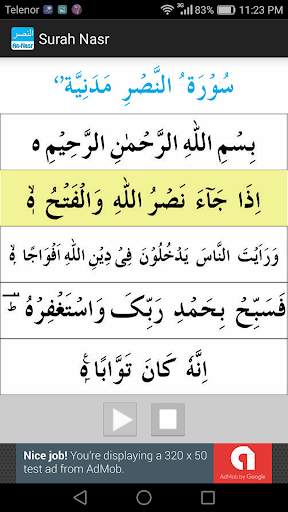 Telenor 83% 11:23 PM
النصر
An-Nasr
Surah Nasr
سُوْرَةُ النَّصْرِ مَدَنِيَّةٌ
بِسْمِ اللهِ الرَّحْمٰنِ الرَّحِيْمِ ہ
اِذَا جَآءَ نَصْرُ اللهِ وَالْفَتْحُ ۙ
وَرَاَيْتَ النَّاسَ يَدْخُلُوْنَ فِىْ دِيْنِ اللهِ اَفْوَاجًا ۙ
فَسَبِّحْ بِحَمْدِ رَبِّكَ وَاسْتَغْفِرْهُ ؕ
اِنَّهٗ كَانَ تَوَّابًا
Nice job! You're displaying a 320 x 50
test ad from AdMob.
AdMob by Google